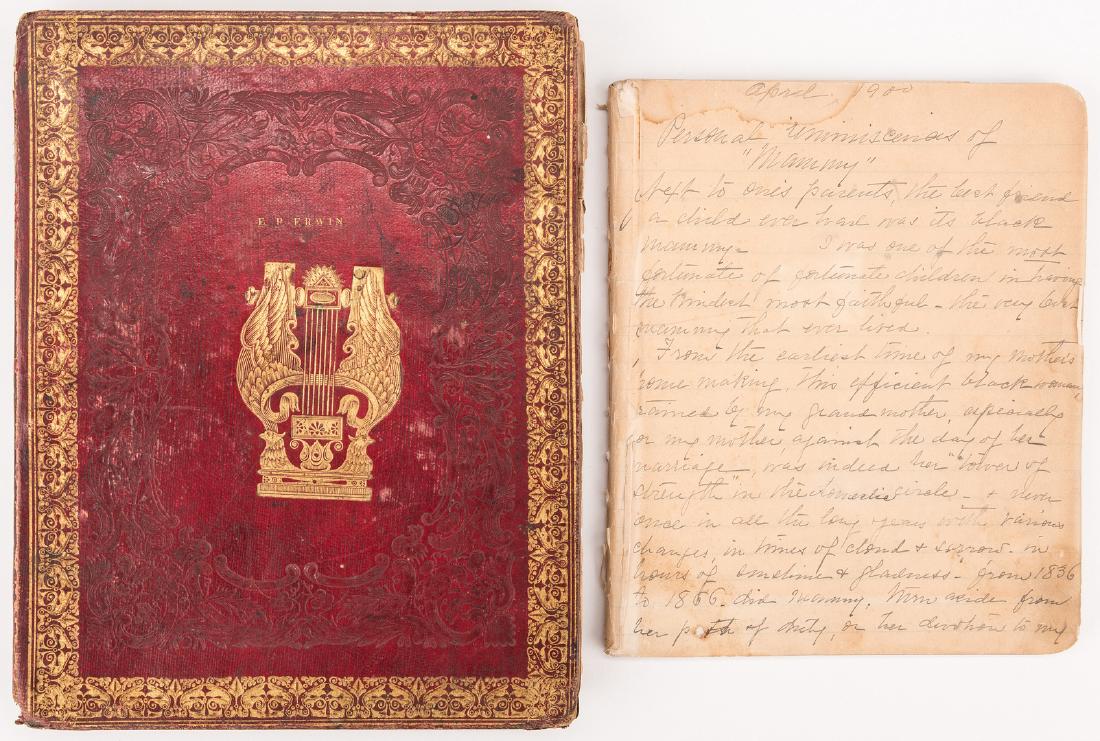 E. P. ERWIN
April 1900
Personal reminiscences of
"Mammy"
Next to one's parents, the best friend
a child ever had was its black
mammy. I was one of the most
fortunate of fortunate children in having
the kindest most faithful - the very best
mammy that ever lived.
From the earliest time of my mother's
home making, this efficient black woman,
rained by my grand mother, especially
for my mother, against the day of her
marriage, was indeed her "tower of
strength" in the domestic circle - & never
once in all the long years with various
changes, in times of cloud & sorrow - in
hours of sunshine & gladness - from 1836
to 1866 - did Mammy, turn aside from
her path of duty, or her devotion to my